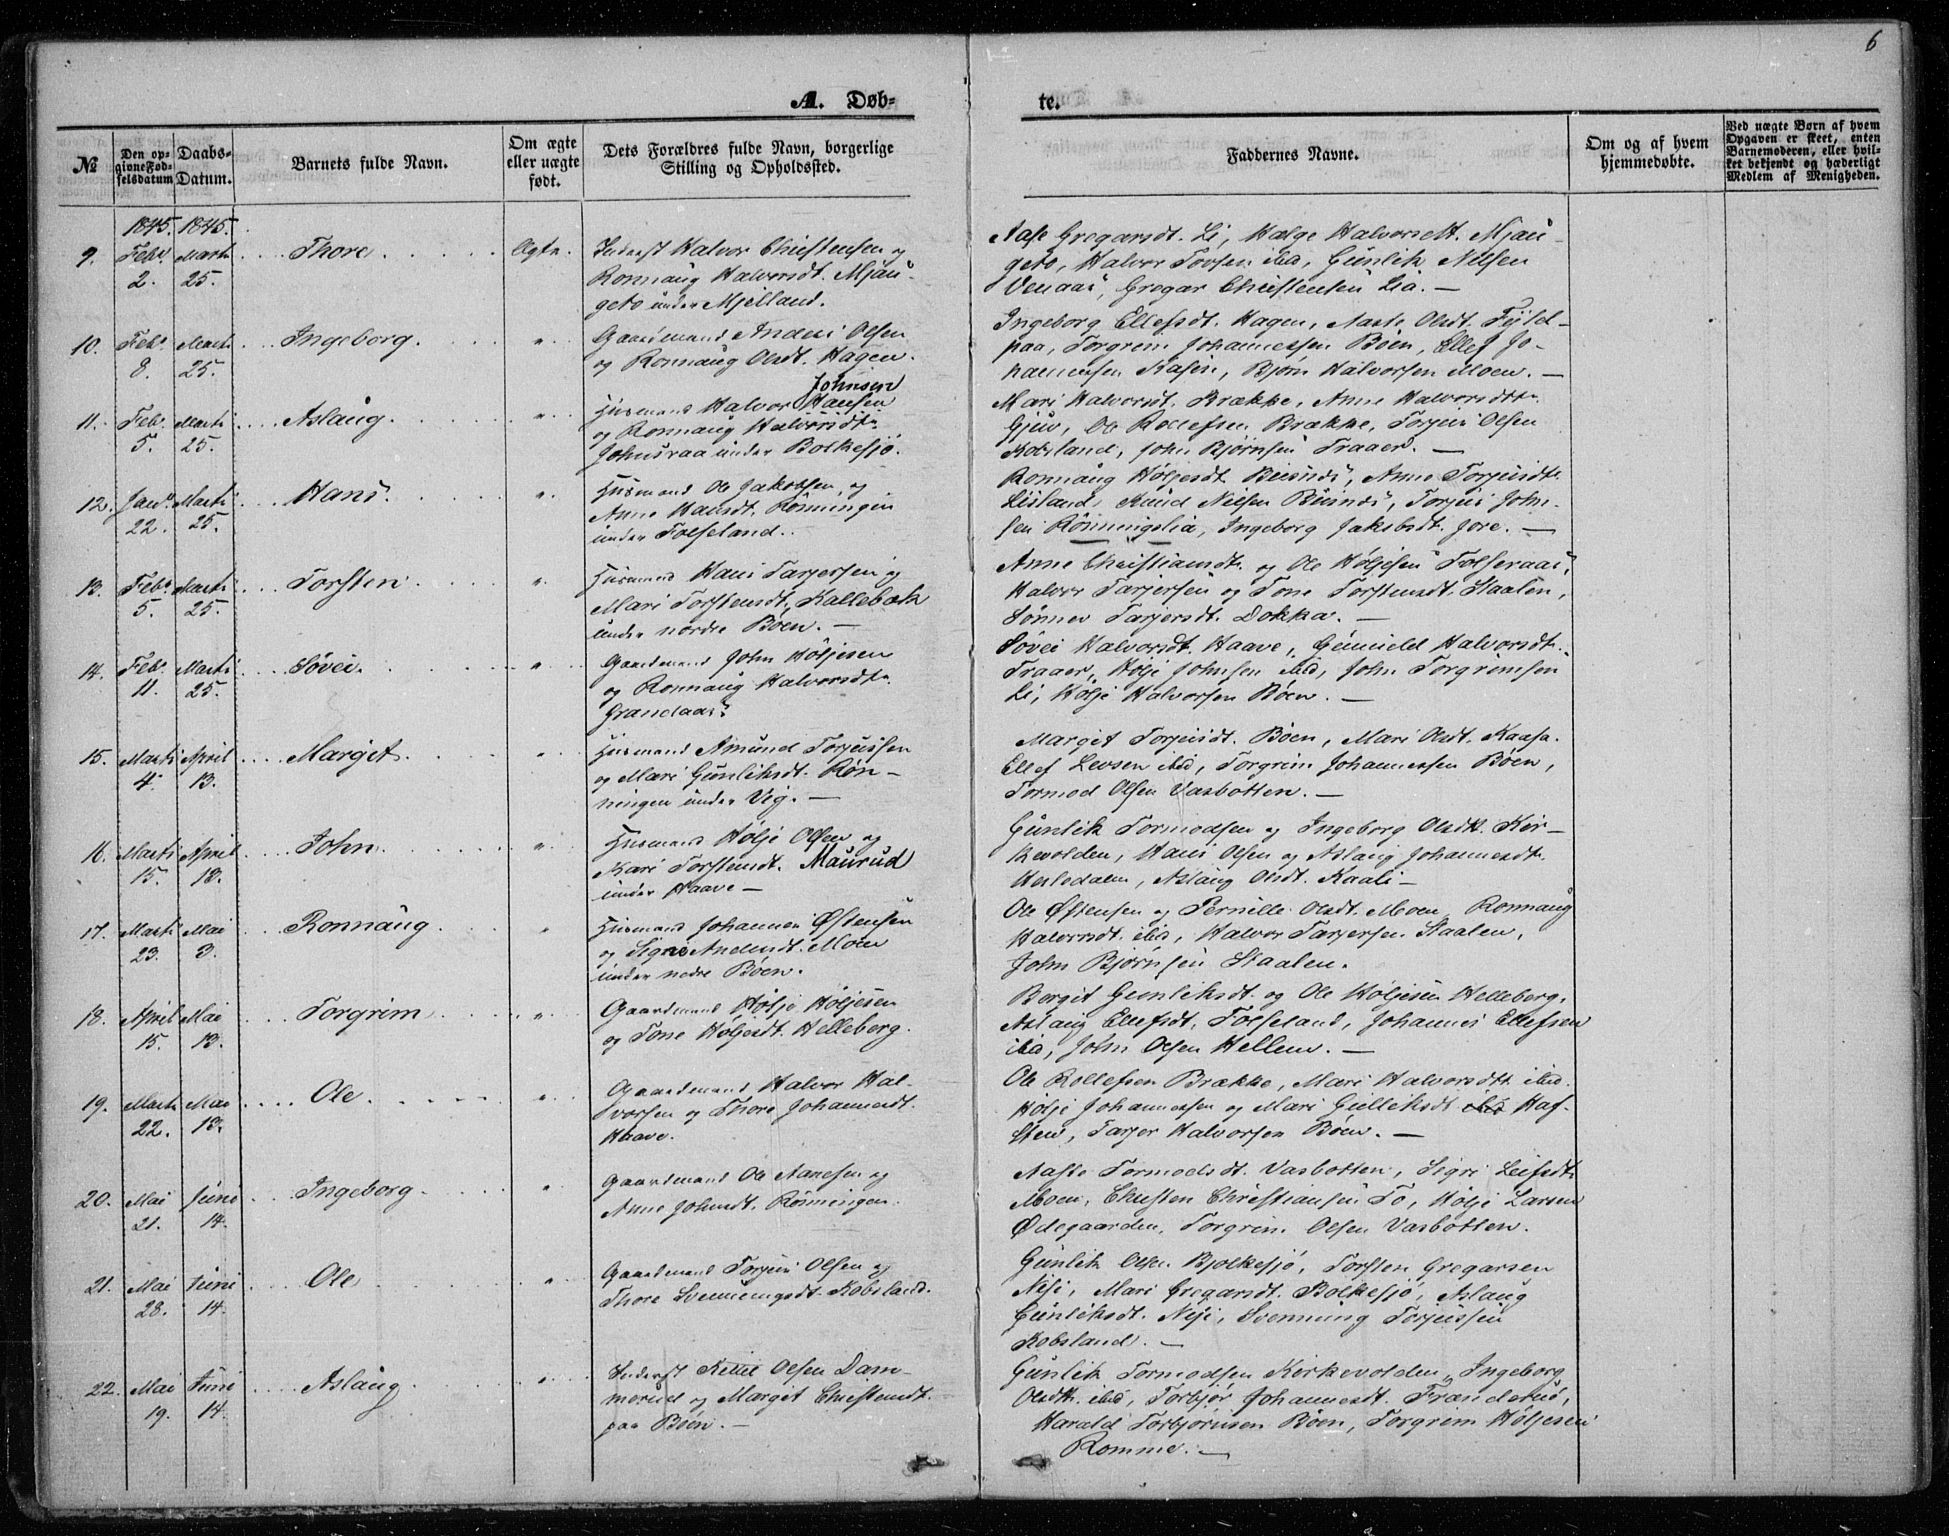 6
A. Døb-
te.
№
Den op-
givne Fød-
selsdatum
Daabs-
Datum.
Barnets fulde Navn.
Om ægte
eller uægte
født.
Dets Forældres fulde Navn, borgerlige
Stilling og Opholdssted.
Faddernes Navne.
Om og af hvem
hjemmedøbte.
Ved uægte Børn af hvem
Opgaven er skeet, enten
Barnemoderen, eller hvil-
ket bekjendt og hæderligt
Medlem af Menigheden.
1845. 1845.
9. Febr. 2. Marti 25. Thore. Ægte.
Inderst Halvor Christensen og
Ronnaug Halvorsdt. Mjau-
geto under Mjelland.
Aase Gregarsdt. Li, Hælge Halvorsdtt. Mjau-
geto, Halvor Tovsen ibid, Gunlik Nilsen
Venaas, Gregar Christensen Lia. —
10. Febr. 8. Marti 25. Ingeborg. "
Gaardmand Anders Olsen
og Ronnaug Olsdt. Hagen.
Ingeborg Ellefsdt. Hagen, Aaste Olsdt. Fyld-
paa, Torgrim Johannessen Bøen, Ellef Jo-
hannessen Kasin, Bjørn Halvorsen Moen. —
11. Feb. 5. Marti 25. Aslaug. "
Johnsen
Husmand Halvor Hansen
og Ronnaug Halvorsdtr
Johnsraa under Bolkesjø.
Mari Halvorsdt. Brække, Anne Halvorsdtr.
Gjuv, Ole Rollefsen Brække, Torjus Olsen
Kobsland, John Bjørnsen Traaer. —
12. Janr. 22. Marti 25. Hans. "
Husmand Ole Jakobsen, og
Anne Hansdt. Rønningen
under Følseland.
Ronnaug Høljesdt. Busnes, Anne Torjusdt.
Lisland, Knud Nielsen Busnes, Torjus John-
sen Rønningslia, Ingeborg Jakobsdt. Jore. —
13. Febr. 5. Marti 25. Torsten. "
Husmand Hans Tarjersen og
Mari Torstensdt. Kallebæk
under nordre Bøen. —
Anne Christiansdt. og Ole Høljesen Følseraas,
Halvor Tarjersen og Tone Torstensdt. Staalen,
Sønnev Tarjersdt. Dokka. —
14. Febr. 11. Marti 25. Søvei. "
Gaardmand John Høljesen
og Ronnaug Halvorsdtr.
Grandaas.
Søvei Halvorsdt. Haave, Gunnild Halvorsdt.
Traaer, Hølje Johnsen ibid, John Torgrimsen
Li, Hølje Halvorsen Bøen. —
15. Marti 4. April 13. Margit. "
Husmand Amund Torjussen
og Mari Gunliksdt. Røn-
ningen under Vig. —
Margit Torjusdt. Bøen, Mari Olsdt. Kaasa.
Ellef Levsen ibid, Torgrim Johannessen Bøen,
Tormod Olsen Vasbotten. —
16. Marti 15. April 13. John. "
Husmand Hølje Olsen og
Kari Torstensdt. Maurud
under Haave —
Gunlik Tormodsen og Ingeborg Olsdtt. Kir-
kevolden, Hans Olsen og Aslaug Johannesdt.
Vesledalen, Aslaug Olsdt. Kaali —
17. Marti 23. Mai 3. Ronnaug. "
Husmand Johannes Østensen
og Sigri Andersdt. Moen
under nedre Bøen.
Ole Østensen og Pernille Olsdt. Moen, Ronnaug
Halvorsdt. ibid, Halvor Tarjersen Staalen,
John Bjørnsen Staalen.
18. April 15. Mai 13. Torgrim "
Gaardmand Hølje Høljesen
og Tone Høljesdt. Helleberg.
Bergit Gunliksdt. og Ole Høljesen Helleberg,
Aslaug Ellefsdt. Følseland, Johannes Ellefsen
ibid, John Olsen Hellem. —
19. Marti 22. Mai 13. Ole. "
Gaardmand Halvor Hal-
vorsen og Thore Johannesdt.
Haave.
Ole Rollefsen Brække, Mari Halvorsdtt. ibid.
Hølje Johannessen og Mari Gulliksdt ibid Haf-
sten, Tarjer Halvorsen Bøen. —
20. Mai 21. Juni 14. Ingeborg. "
Gaardmand Ole Aanesen og
Anne Johnsdt. Rønningen.
Aaste Tormodsdt. Vasbotten, Sigri Leifsdt.
Moen, Christen Christiansen To, Hølje Larsen
Ødegaarden, Torgrim Olsen Vasbotten.
21. Mai 28. Juni 14. Ole "
Gaardmand Torjus Olsen og
Thore Svenningsdt. Kobsland.
Gunlik Olsen Bjolkesjø, Torsten Gregarsen
Nisi, Mari Gregarsdt. Bolkesjø, Aslaug
Gunliksdt. Nisi, Svenning Torjussen
Kobsland. —
22. Mai 19. Juni 14. Aslaug. "
Inderst Kittil Olsen Dam-
merud og Margit Christensdt.
paa Bøen. —
Gunlik Tormodsen Kirkevolden, Ingeborg
Olsdtt. ibid, Torbjør Johannesdt. Frandslid,
Harald Torbjørnsen Bøen, Torgrim Høljesen
Romme. —